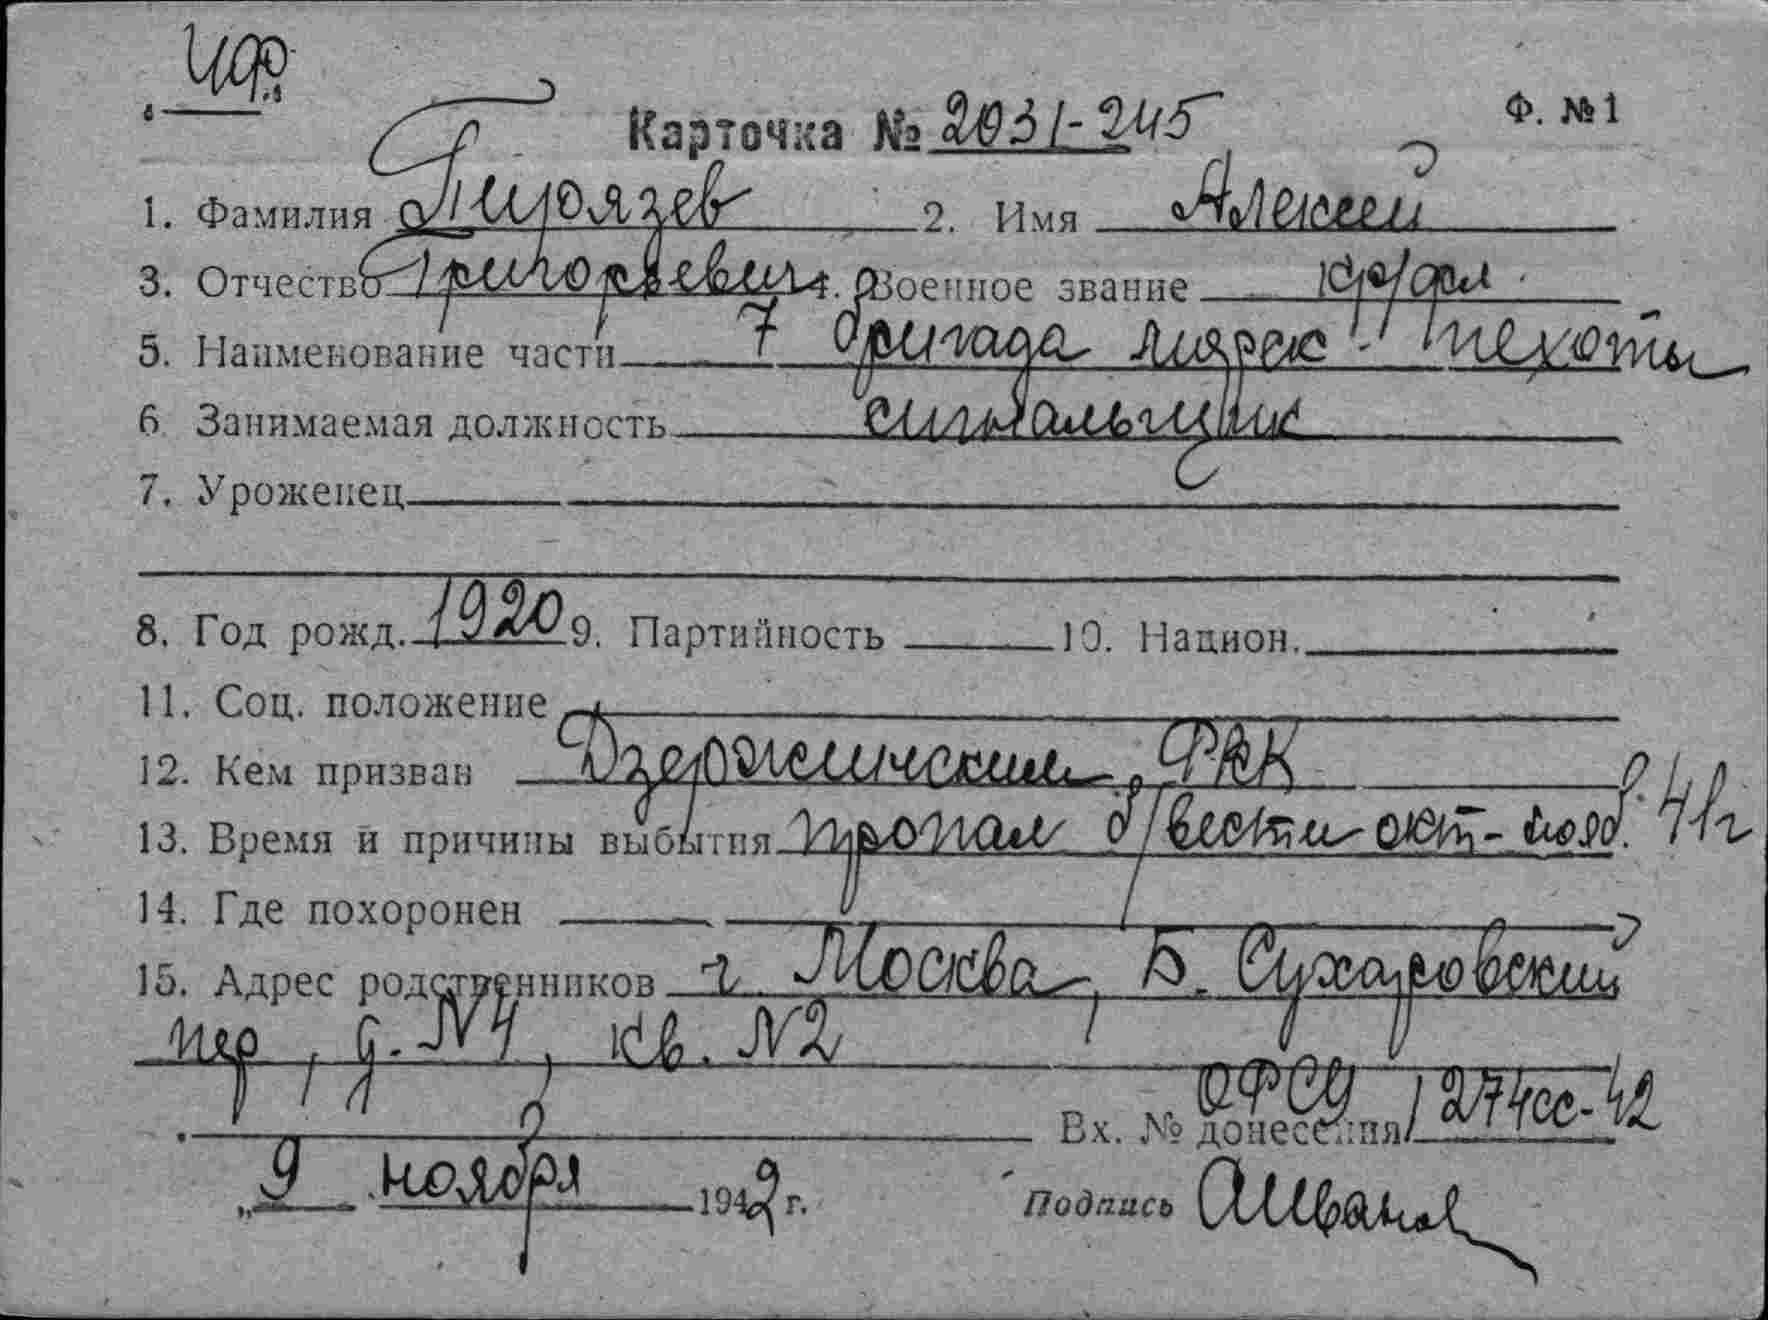 Ф. №1
Карточка № 2031-245
1. Фамилия Пирязев 2. Имя Алексей
3. Отчество Григорьевич 4. Военное звание кр/фл
5. Наименование части 7 бригада морск. пехоты
6 Занимаемая должность сигнальщик
7. Уроженец
8. Год рожд. 1920 9. Партийность 10. Национ.
11. Соц. положение
12. Кем призван Дзержинским РВК
13. Время и причины выбытия пропал б/вести окт-нояб. 41г
14. Где похоронен
15. Адрес родственников г. Москва, Б. Сухаревский
пер, д. №4, кв. №2
Вх. № донесения 1274сс-42
„9 ноября 1942 г. Подпись